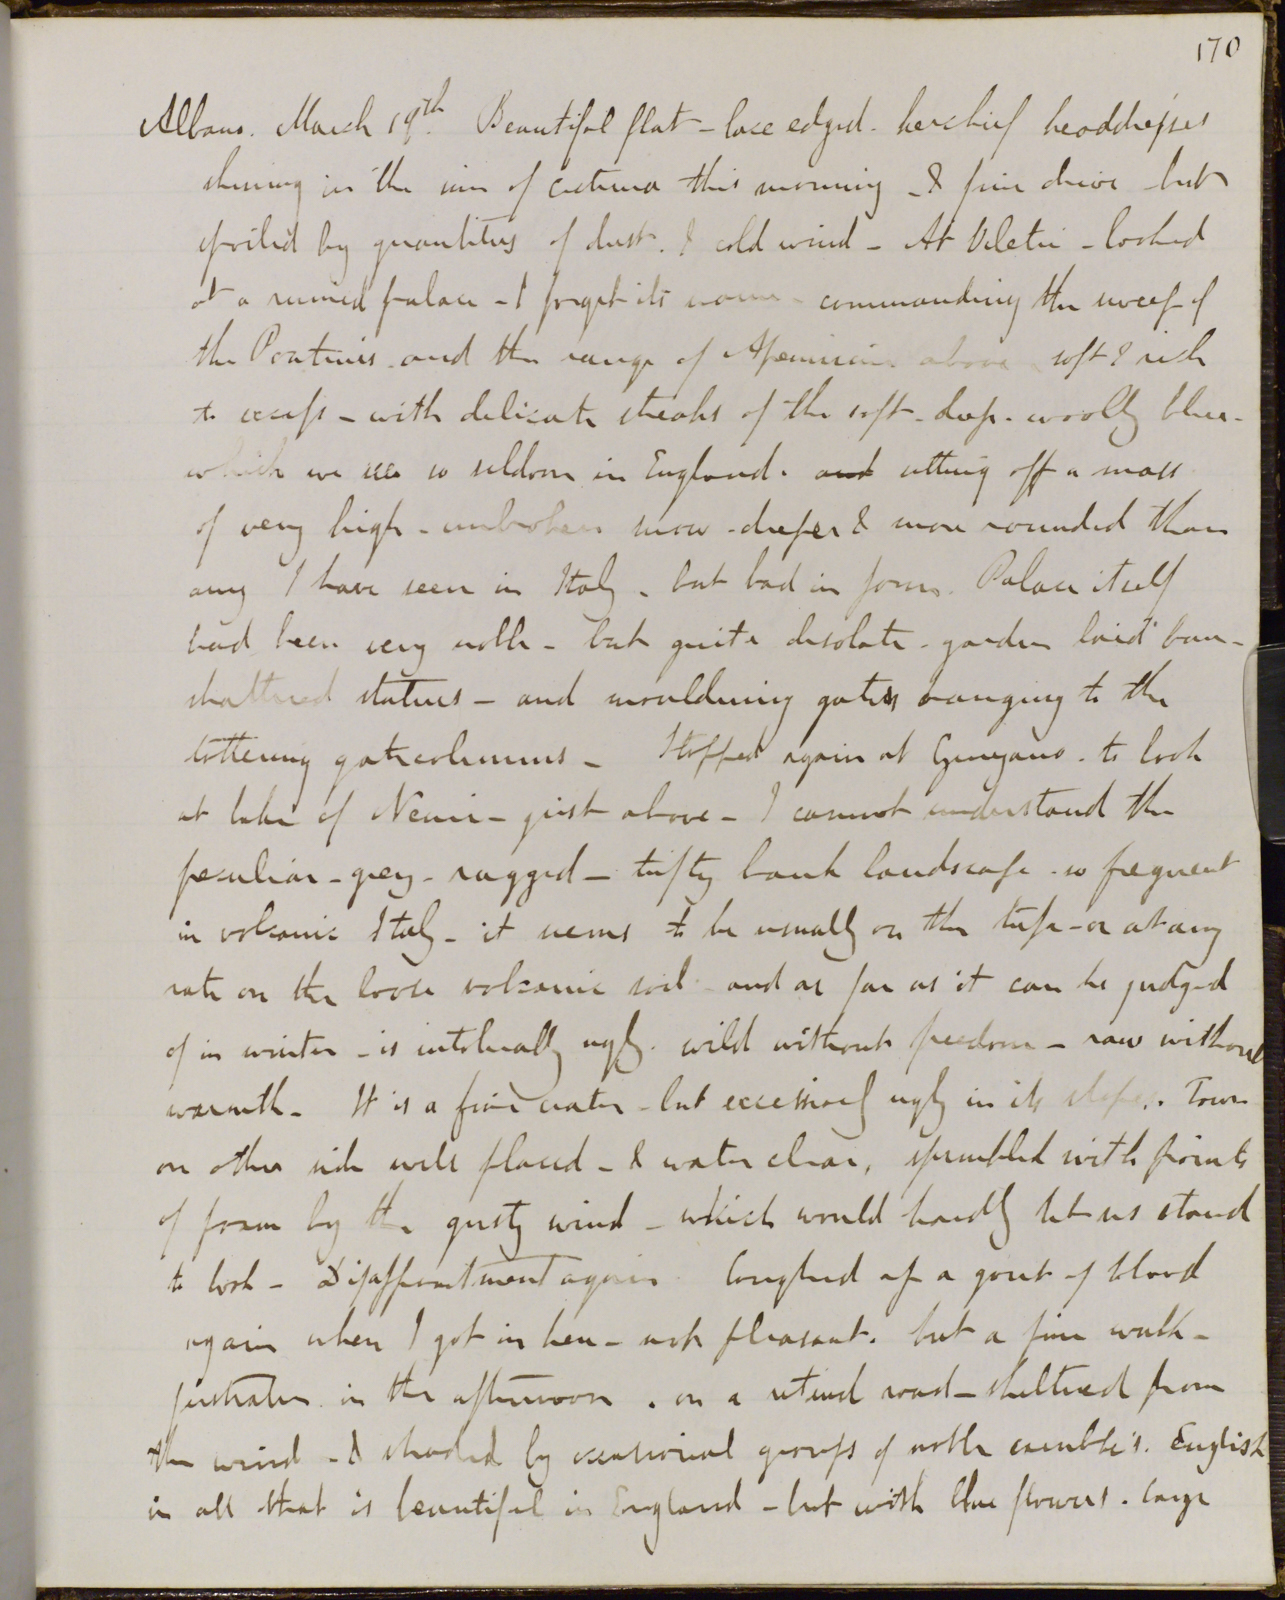 170
Albano. March 19th. Beautiful flat - lace edged - kerchief headdresses
shining in the sun of Cisterna this morning - & fine drive - but
spoiled by quantities of dust. & cold wind - At Veletri - looked
at a ruined palace - I forget its name - commanding the sweep of
the Pontines and the range of Apennines above - soft & rich
to excess - with delicate streaks of the soft - deep - woolly blue -
which we see so seldom in England. and setting off a mass
of very high - unbroken snow - deeper & more rounded than
any I have seen in Italy - but bad in form. Palace itself
had been very noble - but quite desolate - garden laid bare -
shattered statues - and mouldering gates hanging to the
tottering gatecolumns - Stopped again at Genzano - to look
at lake of Nemi - just above - I cannot understand the
peculiar - grey - ragged - tufty bank landscape - so frequent
in volcanic Italy - it seems to be usually on the tufa - or at any
rate on the loose volcanic soil - and as far as it can be judged
of in winter - is intolerably ugly. wild without freedom - raw without
warmth - It is a fine crater - but excessively ugly in its slopes. Town
on other side well placed - & water clear, spangled with points
of foam by the gusty wind - which would hardly let us stand
to look - Disappointment again Coughed up a gout of blood
again when I got in here - not pleasant. but a fine walk -
in the afternoon. on a retired road - sheltered from
the wind - & shaded by occasional groups of noble English
in all that is beautiful in England - but with blue flowers. large